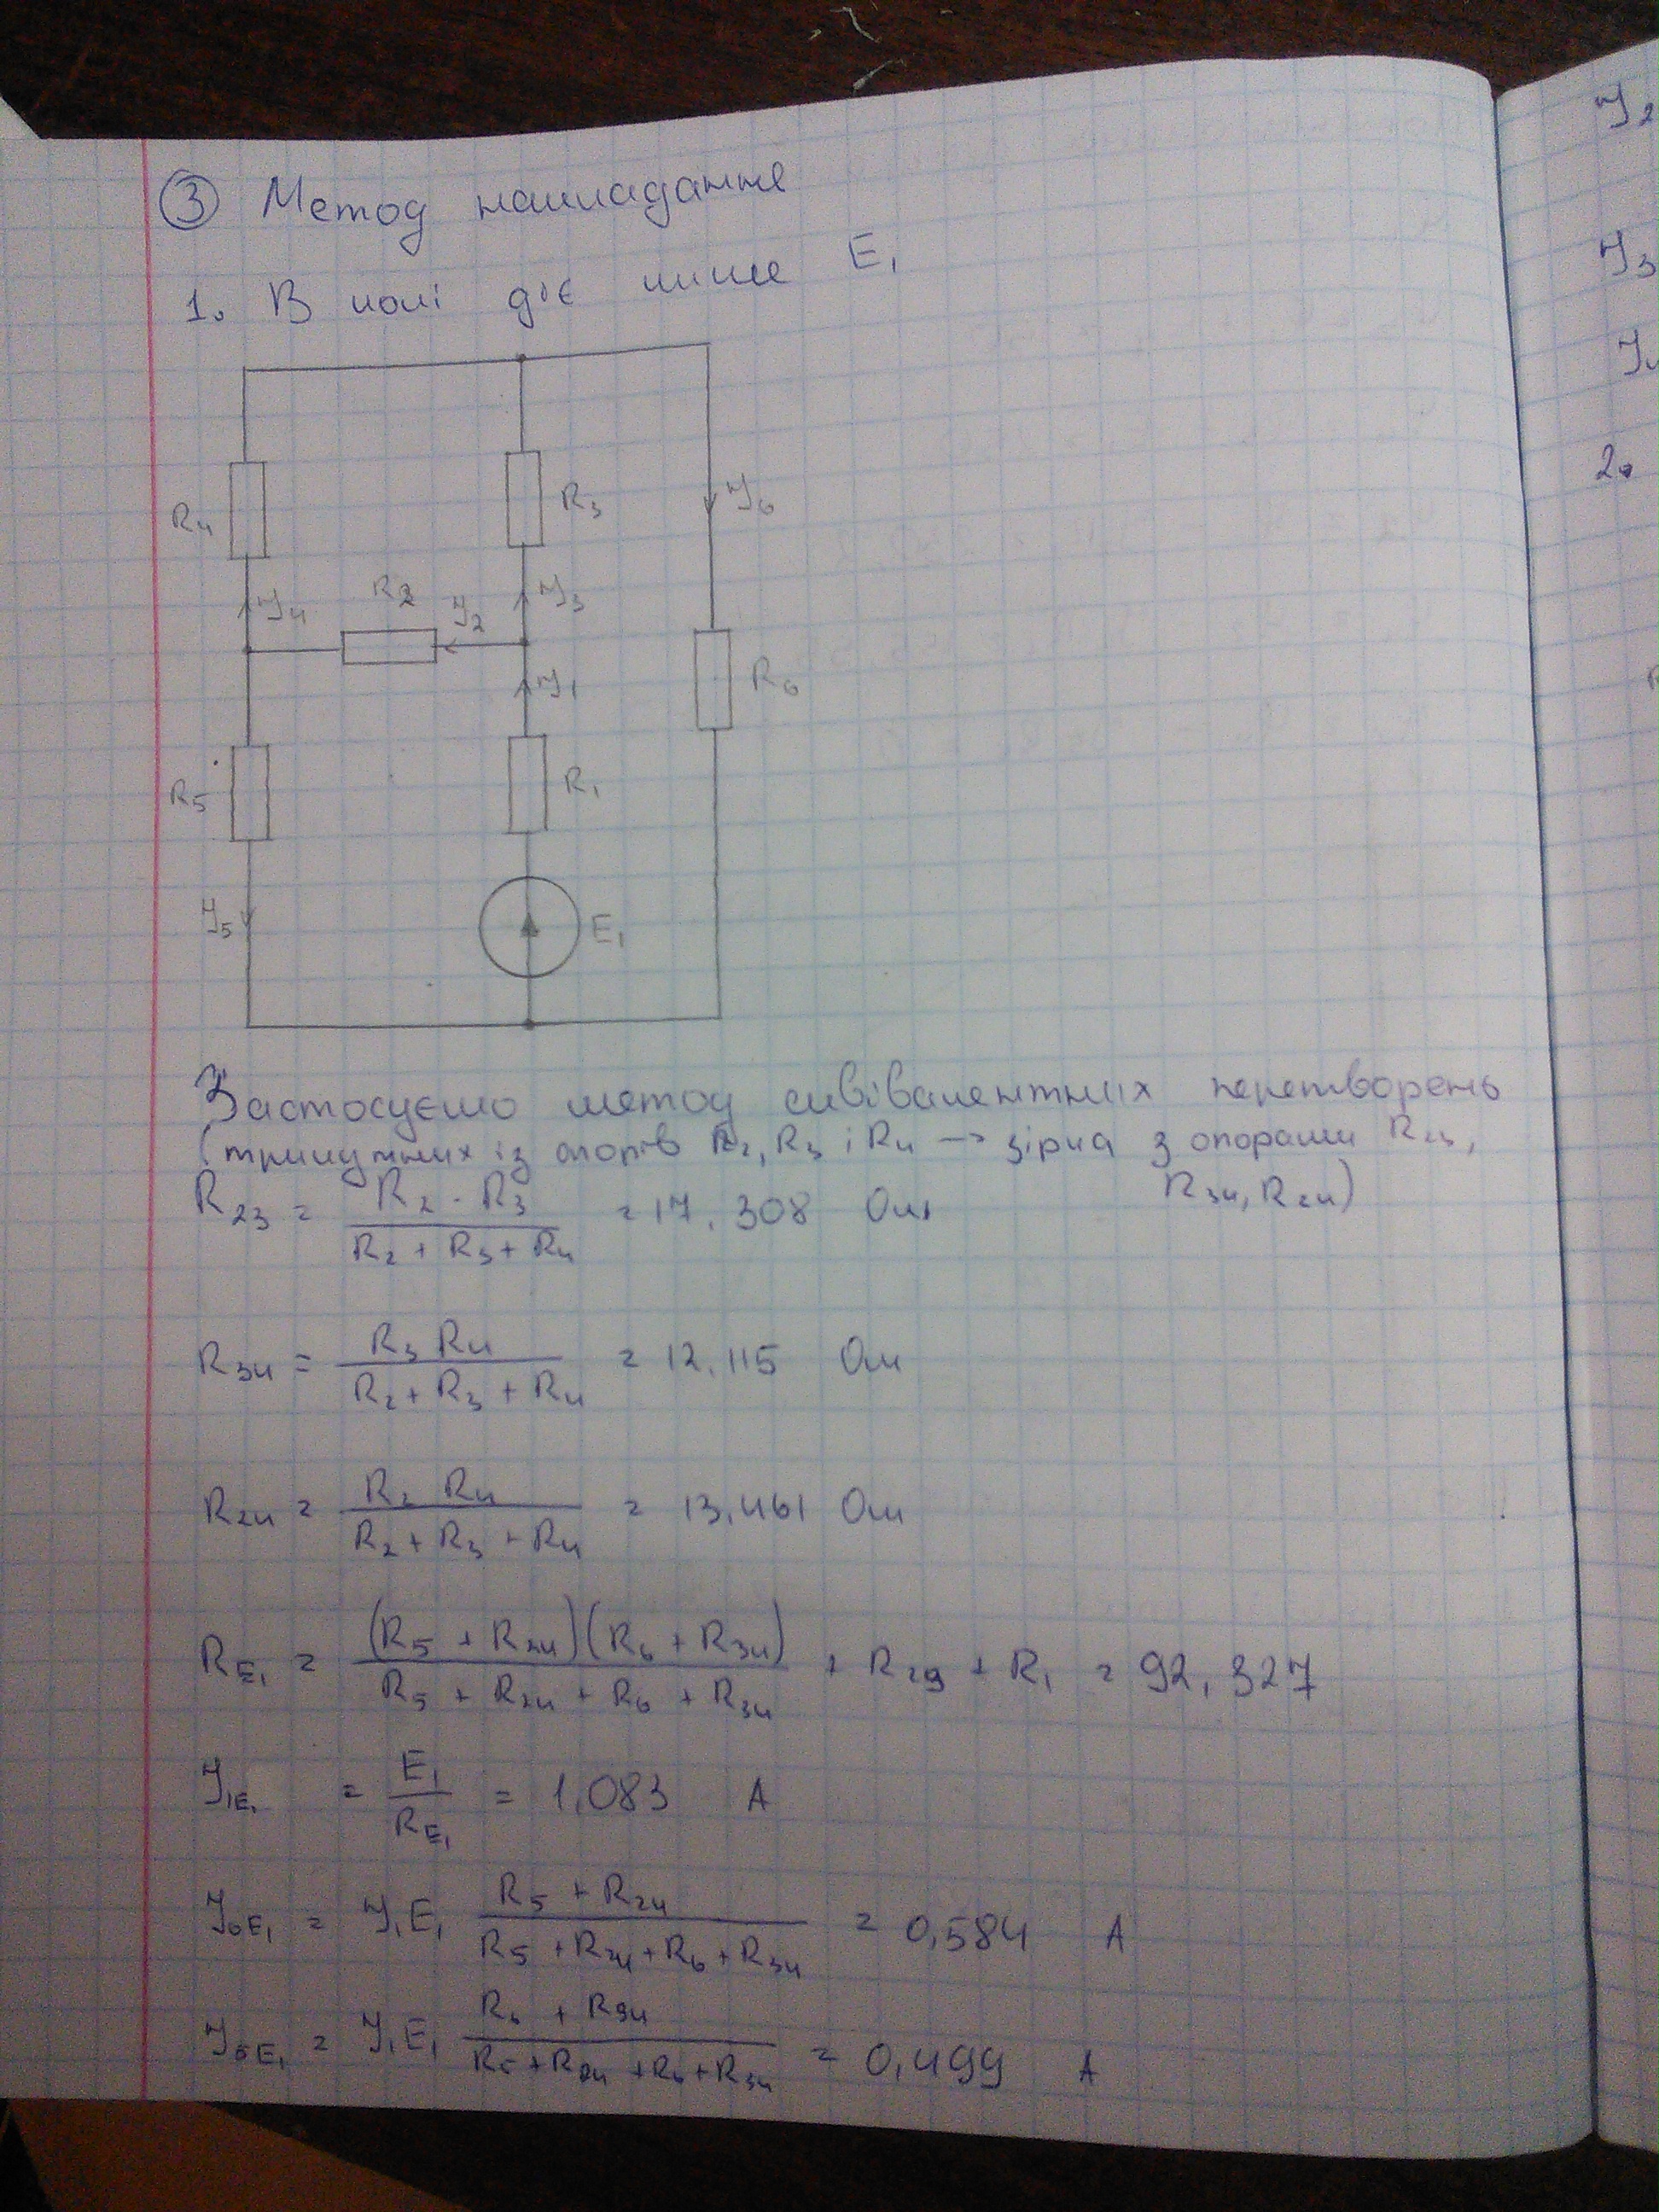 ③ Метод накладання
1. В колі діє лише E₁
R₄
R₃
J₆
R₂
J₄
J₂
J₃
J₁
R₆
R₅
R₁
J₅
E₁
Застосуємо метод еквівалентних перетворень
(трикутник із опорів R₂, R₃ і R₄ → зірка з опорами R₂₃,
R₃₄, R₂₄)
R₂₃ = (R₂ · R₃) / (R₂ + R₃ + R₄) = 17,308 Ом
R₃₄ = (R₃ R₄) / (R₂ + R₃ + R₄) = 12,115 Ом
R₂₄ = (R₂ R₄) / (R₂ + R₃ + R₄) = 13,461 Ом
R_E₁ = ((R₅ + R₂₄)(R₆ + R₃₄)) / (R₅ + R₂₄ + R₆ + R₃₄) + R₂₃ + R₁ = 92,327
J₁E₁ = E₁ / R_E₁ = 1,083 А
J₆E₁ = J₁E₁ (R₅ + R₂₄) / (R₅ + R₂₄ + R₆ + R₃₄) = 0,584 А
J₅E₁ = J₁E₁ (R₆ + R₃₄) / (R₅ + R₂₄ + R₆ + R₃₄) = 0,499 А
J₂
J₃
J₄
2.